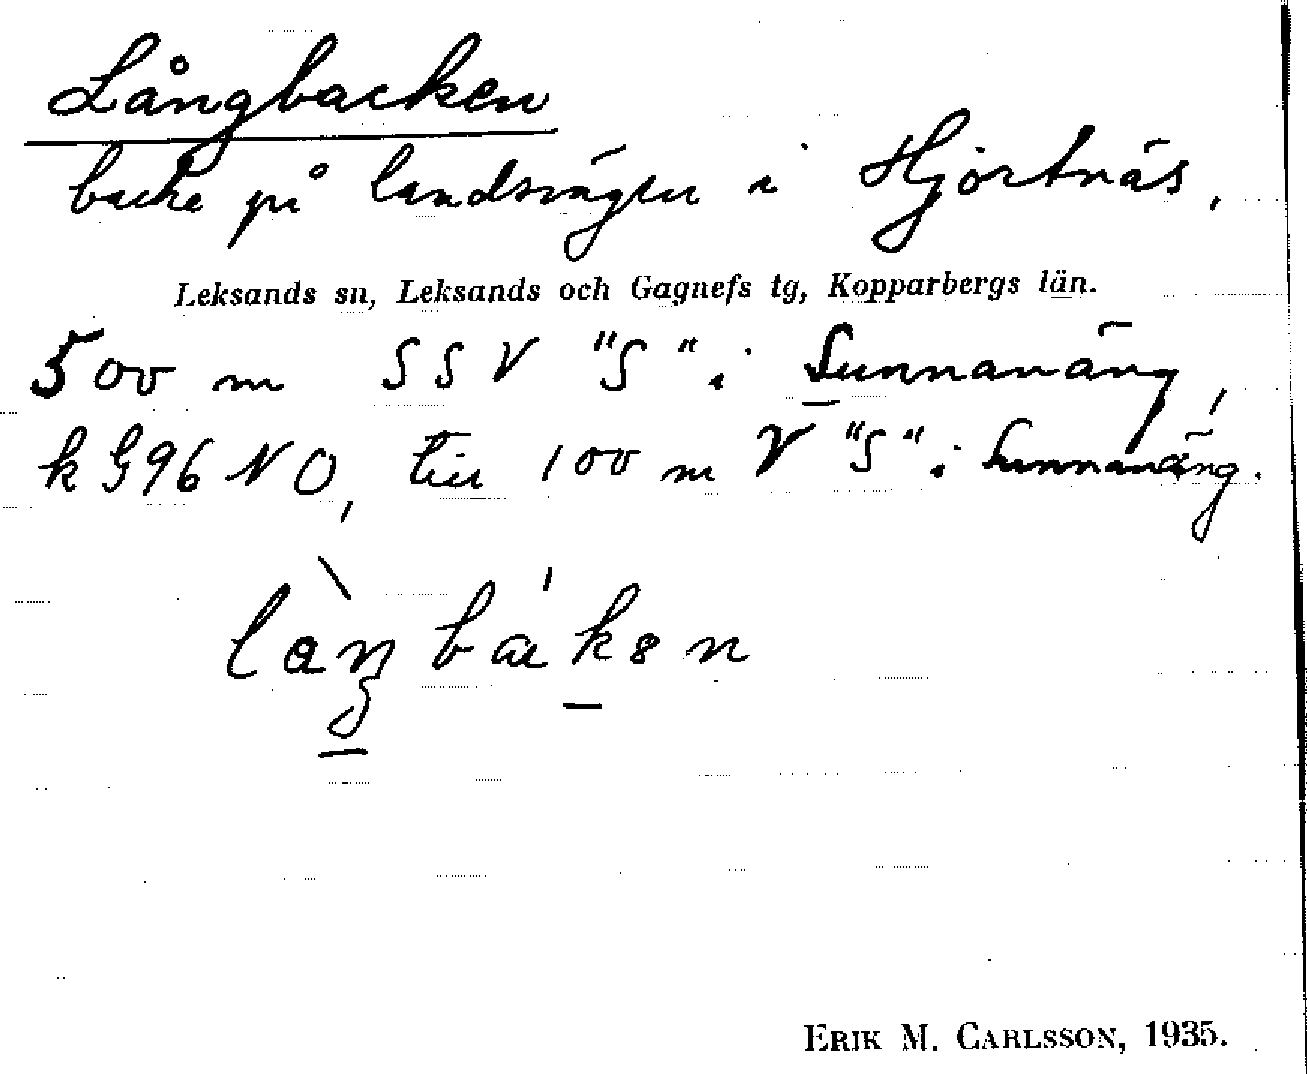 Långbacken
backe på landsvägen i Hjortnäs,
Leksands sn, Leksands och Gagnefs tg, Kopparbergs län.
500 m SSV "S" i Sunnanäng,
k G96 NO, till 100 m V "S" i Sunnanäng.
ERIK M. CARLSSON, 1935.